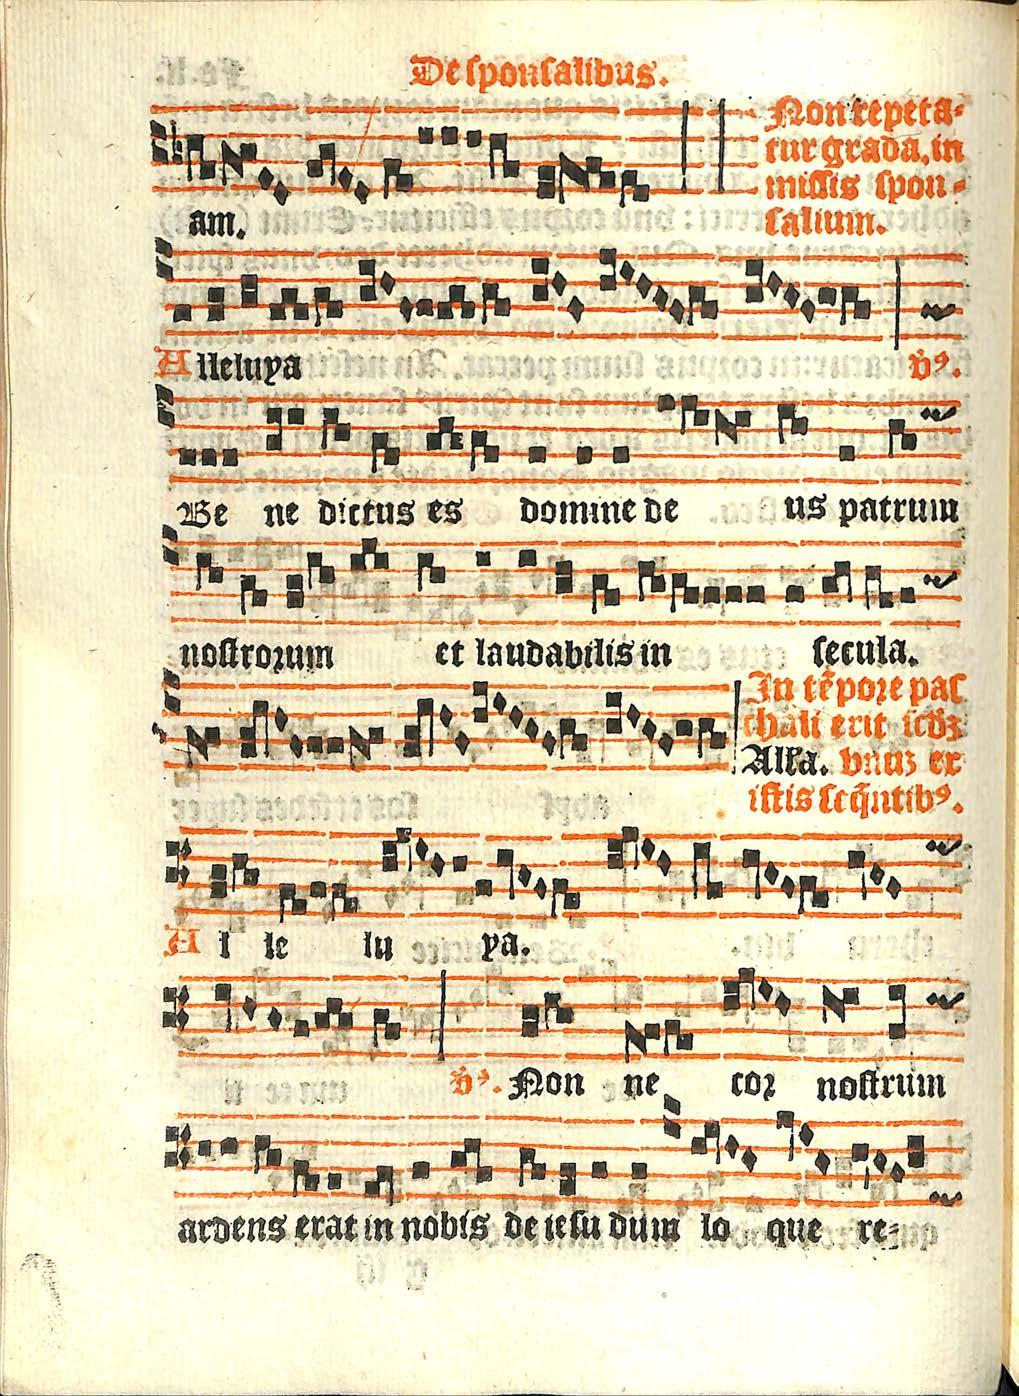 De sponsalibus.
Non repeta-
tur grada. in
missis spon-
salium.
am.
Alleluya ỽꝰ.
Be ne dictus es domine de us patrum
nostrorum et laudabilis in secula.
In tẽpore pas
chali erit
Alla. vnuz ex
istis seq̃ntibꝰ.
Al le lu ya.
ỽꝰ. Non ne cor nostrum
ardens erat in nobis de iesu dum lo que re-